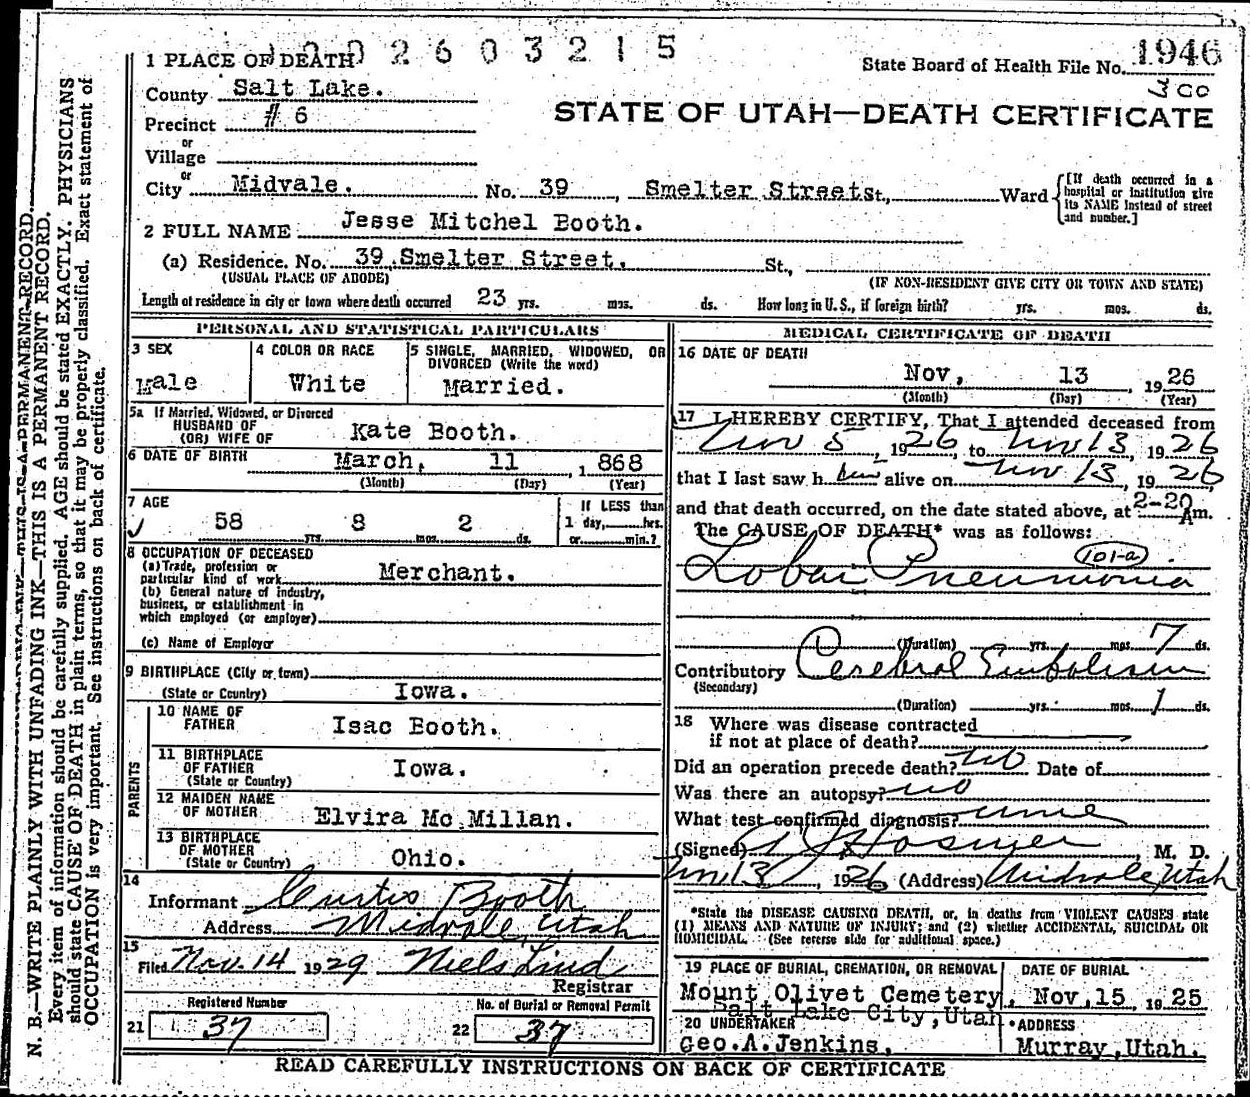 1 PLACE OF DEATH
2603215
State Board of Health File No. 1946
300
County Salt Lake.
STATE OF UTAH—DEATH CERTIFICATE
Precinct # 6
or
Village
or
City Midvale. No. 39, Smelter Street St., Ward
[If death occurred in a hospital or institution give its NAME instead of street and number.]
2 FULL NAME Jesse Mitchel Booth.
(a) Residence. No. 39 Smelter Street. St.,
(USUAL PLACE OF ABODE) (IF NON-RESIDENT GIVE CITY OR TOWN AND STATE)
Length of residence in city or town where death occurred 23 yrs. mos. ds. How long in U. S., if foreign birth? yrs. mos. ds.
PERSONAL AND STATISTICAL PARTICULARS
3 SEX
Male
4 COLOR OR RACE
White
5 SINGLE, MARRIED, WIDOWED, OR
DIVORCED (Write the word)
Married.
5a If Married, Widowed, or Divorced
HUSBAND OF
(OR) WIFE OF Kate Booth.
6 DATE OF BIRTH March, 11, 1868
(Month) (Day) (Year)
7 AGE
58 yrs. 8 mos. 2 ds.
If LESS than
1 day, hrs.
or min.?
8 OCCUPATION OF DECEASED
(a) Trade, profession or
particular kind of work Merchant.
(b) General nature of industry,
business, or establishment in
which employed (or employer)
(c) Name of Employer
9 BIRTHPLACE (City or town)
(State or Country) Iowa.
PARENTS
10 NAME OF
FATHER Isac Booth.
11 BIRTHPLACE
OF FATHER Iowa.
(State or Country)
12 MAIDEN NAME
OF MOTHER Elvira Mc Millan.
13 BIRTHPLACE
OF MOTHER
(State or Country) Ohio.
14
Informant Curtis Booth
Address Midvale, Utah
15
Filed Nov. 14 1929 Niels Lind
Registrar
Registered Number
21 37
No. of Burial or Removal Permit
22 37
MEDICAL CERTIFICATE OF DEATH
16 DATE OF DEATH
Nov, 13, 1926
(Month) (Day) (Year)
17 I HEREBY CERTIFY, That I attended deceased from
Nov 5, 1926, to Nov 13, 1926
that I last saw him alive on Nov 13, 1926,
and that death occurred, on the date stated above, at 2-20 Am.
The CAUSE OF DEATH* was as follows:
101-a
Lobar Pneumonia
(Duration) yrs. mos. 7 ds.
Contributory Cerebral Embolism
(Secondary)
(Duration) yrs. mos. 1 ds.
18 Where was disease contracted
if not at place of death?
Did an operation precede death? no Date of
Was there an autopsy? no
What test confirmed diagnosis? none
(Signed) Hosmer M. D.
Nov 13, 1926 (Address) Midvale Utah
*State the DISEASE CAUSING DEATH, or, in deaths from VIOLENT CAUSES state
(1) MEANS AND NATURE OF INJURY; and (2) whether ACCIDENTAL, SUICIDAL OR
HOMICIDAL. (See reverse side for additional space.)
19 PLACE OF BURIAL, CREMATION, OR REMOVAL
Mount Olivet Cemetery,
Salt Lake City, Utah
DATE OF BURIAL
Nov, 15, 1925
20 UNDERTAKER
Geo. A. Jenkins,
ADDRESS
Murray, Utah.
READ CAREFULLY INSTRUCTIONS ON BACK OF CERTIFICATE
N. B.—WRITE PLAINLY WITH UNFADING INK—THIS IS A PERMANENT RECORD.
Every item of information should be carefully supplied. AGE should be stated EXACTLY. PHYSICIANS
should state CAUSE OF DEATH in plain terms, so that it may be properly classified. Exact statement of
OCCUPATION is very important. See instructions on back of certificate.